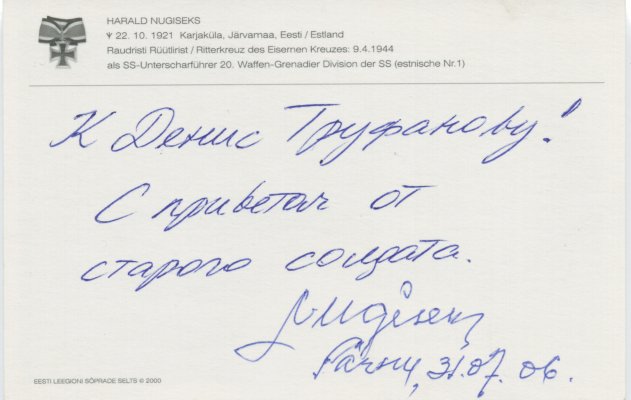 HARALD NUGISEKS
Ұ 22. 10. 1921 Karjaküla, Järvamaa, Eesti / Estland
Raudristi Rüütlirist / Ritterkreuz des Eisernen Kreuzes: 9.4.1944
als SS-Unterscharführer 20. Waffen-Grenadier Division der SS (estnische Nr.1)
К Денис Труфанову!
С приветом от
старого солдата.
Nugiseks
Pärnu, 31.07.06.
EESTI LEEGIONI SÕPRADE SELTS © 2000